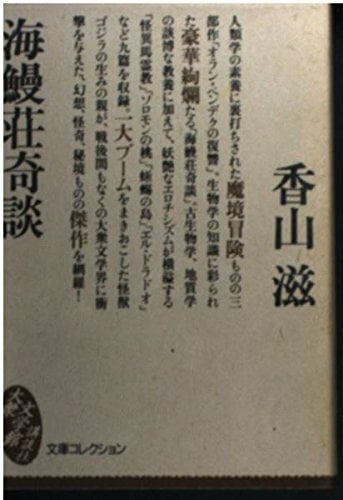 香山滋
人類学の素養に裏打ちされた魔境冒険ものの三
部作『オラン・ペンデクの復讐』。生物学の知識に彩られ
た豪華絢爛たる『海鰻荘奇談』。古生物学、地質学
の該博な教養に加えて、妖艶なエロチシズムが横溢する
『怪異馬霊教』『ソロモンの桃』『蜥蜴の島』『エル・ドラドオ』
など九篇を収録。一大ブームをまきおこした怪獣
ゴジラの生みの親が、戦後間もなくの大衆文学界に衝
撃を与えた、幻想、怪奇、秘境ものの傑作を網羅!
海鰻荘奇談
大衆文学館
講談社
文庫コレクション